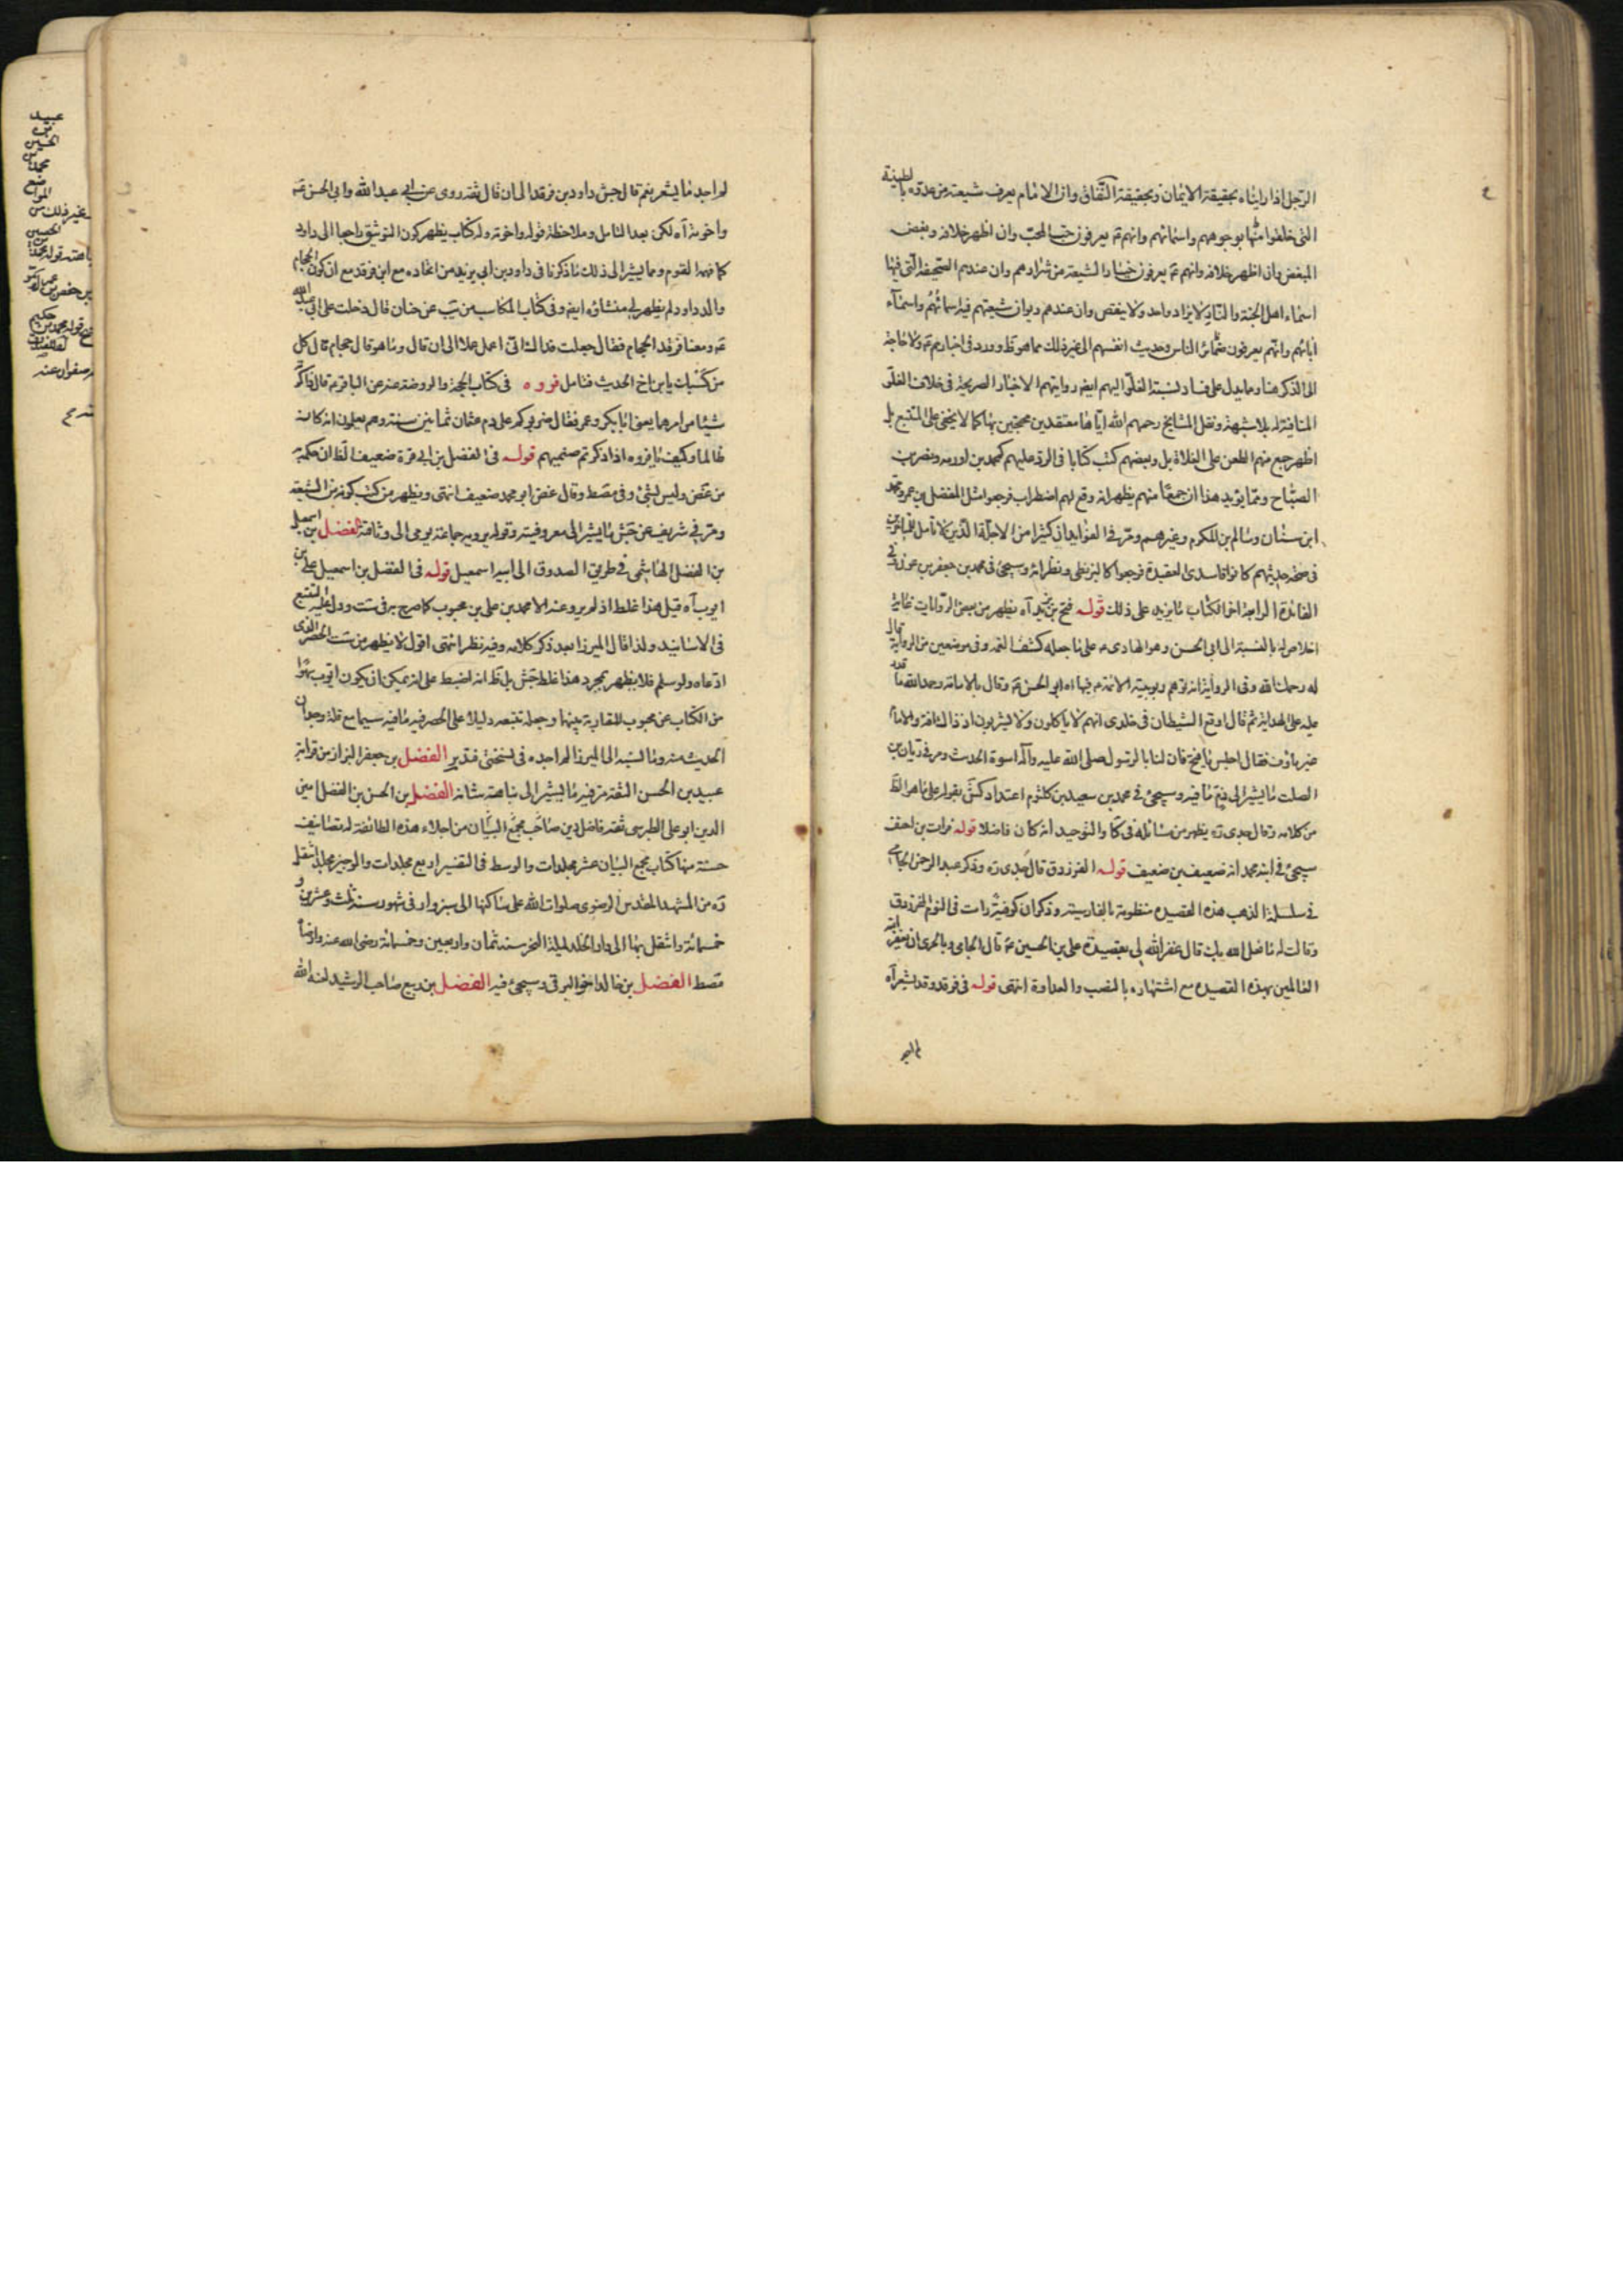 الرّجل اذا رايناه بحقيقة الايمان وبحقيقة النّفاق وان الامام يعرف شيعته من عدوّه بالطينة
التى خلقوا منها بوجوههم واسمائهم وانهم يعرفون حبّ المحبّ وان اظهر خلافه وبغض
المبغض وان اظهر خلافه وانهم يعرفون خيار الشيعة من شرارهم وان عندهم الصّحيفة الّتى فيها
اسماء اهل الجنّة والنّار لا يزاد واحد ولا ينقص وان عندهم ديوان شيعتهم فيه اسمائهم واسماء
ابائهم وانّهم يعرفون ضمائر الناس وحديث انفسهم الى غير ذلك مما هو ظ وورد فى اخبارهم ولا حاجة
الى الذكر هنا ومما يدل على فساد نسبة الغلوّ اليهم ايضا روايتهم الاخبار الصريحة فى خلاف الغلّو
المنافية له بلا شبهة ونقل المشايخ رحمهم الله ايّاها معتقدين محتجين بها كما لا يخفى على المتتبع بل
اظهر جمع منهم الطعن على الغلاة بل وبعضهم كتب كتابا فى الردّ عليهم كمحمد بن اورمه ونصر بن
الصبّاح وممّا يؤيد هذا ان جمعًا منهم يظهر انه وقع لهم اضطراب فرجعوا مثل المفضل بن عمر ومحمد
ابن سنان وسالم بن المكرم وغيرهم ومرّ فى الفوايد ان كثيرا من الاجلّة الّذين لا تأمل
فى صحة حديثهم كانوا فاسدى العقيدة فرجعوا كالبزنطى ونظرائه وسيجئ فى محمد بن جعفر بن عون فى
الفائدة الرابعة اخر الكتاب ما يزيد على ذلك قوله فتح بن يزيد آه يظهر من بعض الروايات غاية
اخلاصه له بالنسبة الى ابى الحسن وهو الهادى على ما جعله كشف الغمه وفى موضعين من الرواية قال
له رحمك الله وفى الرواية انه توهم ربوبية الائمة فنهاه ابو الحسن وقال
عليه على الهداية ثم قال اوقع الشيطان فى خلدى انهم لا ياكلون ولا يشربون اذ ذاك افة والامام
غير مأوف فقال اجلس يا فتح فان لنا بالرسول صلى الله عليه وآله اسوة الحديث ومر فى ريان بن
الصلت ما يشير الى ذم ما فيه وسيجئ فى محمد بن سعيد بن كلثوم اعتداد كش بقوله على ما هو الظ
من كلامه وقال جدى ره يظهر من مسائله فى كا والتوحيد انه كان فاضلا قوله فرات بن احنف
سيجئ فى ابنه محمد انه ضعيف بن ضعيف قوله الفرزدق قال جدى ره وذكر عبد الرحمن الجامى
فى سلسلة الذهب هذه القصيده منظومة بالفارسية وذكر ان كوفيّة رات فى النوم الفرزدق
وقالت له ما فعل الله بك قال غفر الله لى بقصيدة على بن الحسين ع قال الجامى وبالحرى ان يغفر الله
العالمين بهذه القصيده مع اشتهاره بالنصب والعداوة انتهى قوله فى فرقد وقد يشعر آه
لم اجد ما يشعر نعم قال جش داود بن فرقد الى ان قال ثقة روى عن ابى عبد الله وابى الحسن
واخوته آه لكن بعد التامل وملاحظة قوله واخوته وله كتاب يظهر كون التوثيق راجعا الى داود
كما فهمه القوم ومما يشير الى ذلك ما ذكرنا فى داود بن ابى يزيد من اتحاده مع ابن فرقد مع ان كون الحجام
والد داود لم يظهر لى منشاؤه ايضا وفى كتاب المكاسب من يب عن حنان قال دخلت على ابى عبد الله
ومعنا فرقد الحجام فقال جعلت فداك انى اعمل عملا الى ان قال وما هو قال حجام قال كل
من كسبك يا بن اخ الحديث فتامل فروه فى كتاب الحجة والروضة عنه عن الباقر ع قال ذاكرته
شيئا من امرهما يعنى ابا بكر وعمر فقال ضربوكم على دم عثمان ثمانين سنة وهم يعلمون انه كان
ظالما وكيف يا فروه اذا ذكرتم صنميهم قوله فى الفضل بن ابى قرة ضعيف الظ ان حكمه
من غض وليس بشئ وفى مصط وقال غض ابو محمد ضعيف انتهى ويظهر من كتب كونه من الشيعة
ومر فى شريف عن جش ما يشير الى معروفيته وقوله يرويه جماعة يومى الى وثاقته الفضل بن اسمعيل
بن الفضل الهاشمى فى طريق الصدوق الى ابيه اسمعيل قوله فى الفضل بن اسمعيل على بن
ايوب آه قيل هذا غلط اذ لم يرو عنه الا محمد بن على بن محبوب كما صرح به فى ست ودل عليه التتبع
فى الاسانيد ولذا قال الميرزا بعد ذكر كلامه وفيه نظر انتهى اقول لا يظهر من ست الحصر الذى
ادّعاه ولو سلم فلا يظهر بمجرد هذا غلط جش بل ظ انه اضبط على انه يمكن ان يكون ايوب
من الكتاب عن محبوب للمقاربة بينهما وجعله تتبعه دليلا على الحصر فيه ما فيه سيما مع قلة وجدان
الحديث منه وما نسبه الى الميرزا لم اجده فى نسختى فتدبر الفضل بن جعفر البزاز من قرابة
عبيد بن الحسن الثقة مر فيه ما يشير الى نباهة شانه الفضل بن الحسن بن الفضل امين
الدين ابو على الطبرسى ثقة فاضل دين صاحب مجمع البيان من اجلاء هذه الطائفة له تصانيف
حسنة منها كتاب مجمع البيان عشر مجلدات والوسط فى التفسير اربع مجلدات والوجيز مجلد انتقل
ره من المشهد المقدس الرضوى صلوات الله على ساكنها الى سبزوار فى شهور سنة ثلث وعشرين و
خمسمائة وانتقل بها الى دار الخلد ليلة النحر سنة ثمان واربعين وخمسمائة رضى الله عنه وارضاه
مصط الفضل بن خالد اخو البرقى وسيجئ فيه الفضل بن ربيع صاحب الرشيد لعنه الله
لم اجد
عبيد
بن
الحسين
محمد
غير ذلك من
الحسين
بن حفص
حكيم
قوله محمد بن
عنه